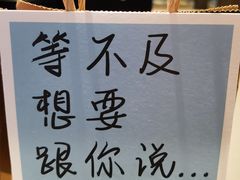 等不及
想要
跟你说...